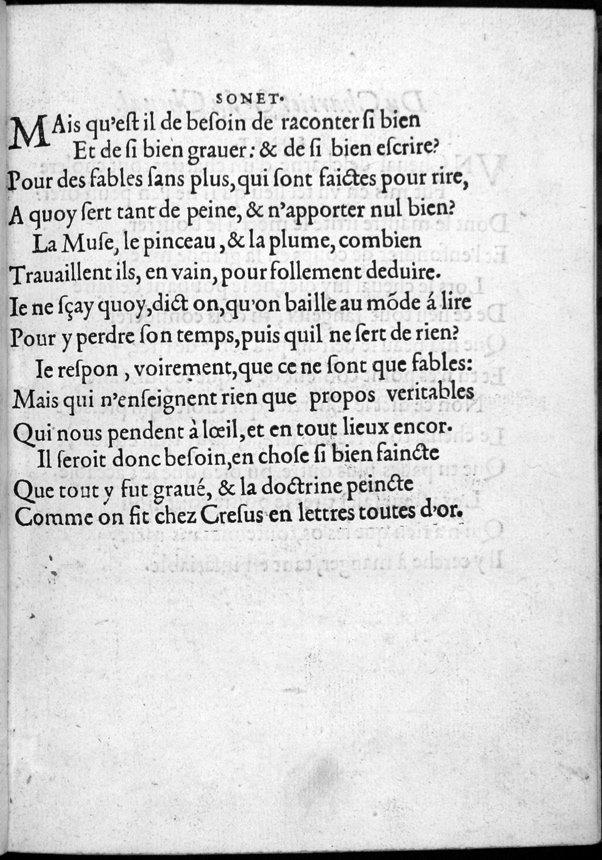 SONET.
MAis qu'eſt il de beſoin de raconter ſi bien
Et de ſi bien grauer: & de ſi bien eſcrire?
Pour des fables ſans plus, qui ſont faictes pour rire,
A quoy ſert tant de peine, & n'apporter nul bien?
La Muſe, le pinceau, & la plume, combien
Trauaillent ils, en vain, pour follement deduire.
Ie ne ſçay quoy, dict on, qu'on baille au mōde á lire
Pour y perdre ſon temps, puis quil ne ſert de rien?
Ie reſpon, voirement, que ce ne ſont que fables:
Mais qui n'enſeignent rien que propos veritables
Qui nous pendent à lœil, et en tout lieux encor.
Il ſeroit donc beſoin, en choſe ſi bien faincte
Que tout y fut graué, & la doctrine peincte
Comme on fit chez Creſus en lettres toutes d'or.